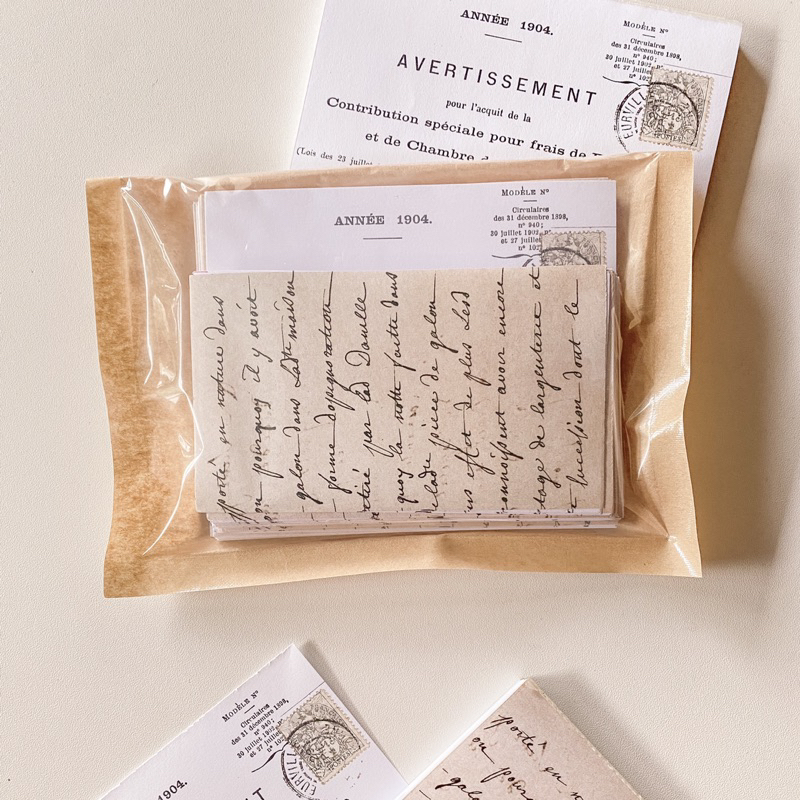 ANNÉE 1904.
MODÈLE Nº
Circulaires
des 31 décembre 1898,
nº 940;
30 juillet 1902,
et 27 juillet
nº 102
AVERTISSEMENT
pour l'acquit de la
Contribution spéciale pour frais de
et de Chambre
(Lois des 23 juillet
EURVILL
ANNÉE 1904.
MODÈLE Nº
Circulaires
des 31 décembre 1898,
nº 940;
30 juillet 1902,
et 27 juillet
nº 102
porté en nature dans
ou pourquoy il y avoit
galon dans Ladte maison
forme dopignoration
retiré par lad Damlle
quoy la notte faitte dans
pièce de galon
effet de plus Lesd
connoissent avoir encore
tage de largenterie et
succession dont le
MODÈLE Nº
Circulaires
des 31 décembre 1898,
nº 940;
30 juillet 1902,
et 27 juillet
nº 102
EURVILL
1904.
porté en n
ou pourq
galo